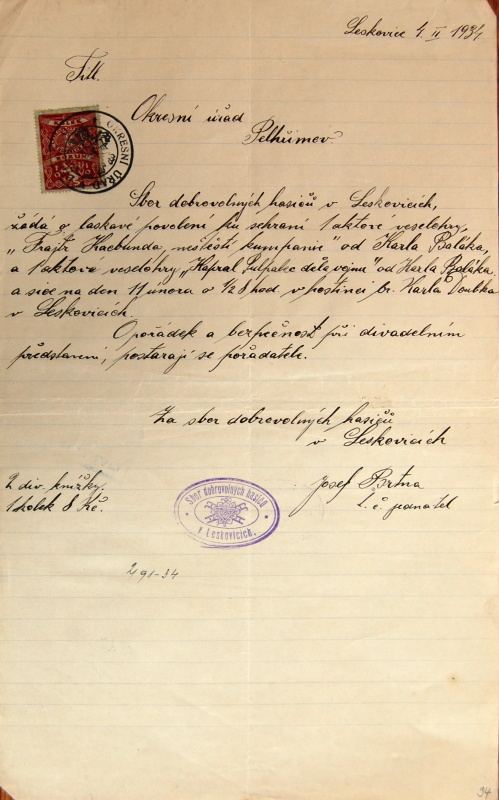 Leskovice 4. II 1934.
Titl.
Okresní úřad
Pelhřimov.
KOLEK
KORUN
OKRESNÍ ÚŘAD
Sbor dobrovolných hasičů v Leskovicích,
žádá o laskavé povolení ku sehraní 1 aktové veselohry,
"Frajtr Kacbunda, neštěstí kumpanie" od Karla Baláka,
a 1 aktova veselohry, "Kaprál Pulpalec dělá vojnu" od Karla Baláka.
a sice na den 11 února o ½8 hod. v postinci br. Karla Doubka
v Leskovicích.
O pořádek a bezpečnost při divadelním
představení, postarají se pořadatelé.
Za sbor dobrovolných hasičů
v Leskovicích
2 div. knížky.
1 kolek 8 Kč.
Sbor dobrovolných hasičů
v Leskovicích.
Josef Brtna
t. č. jednatel
291-34
94